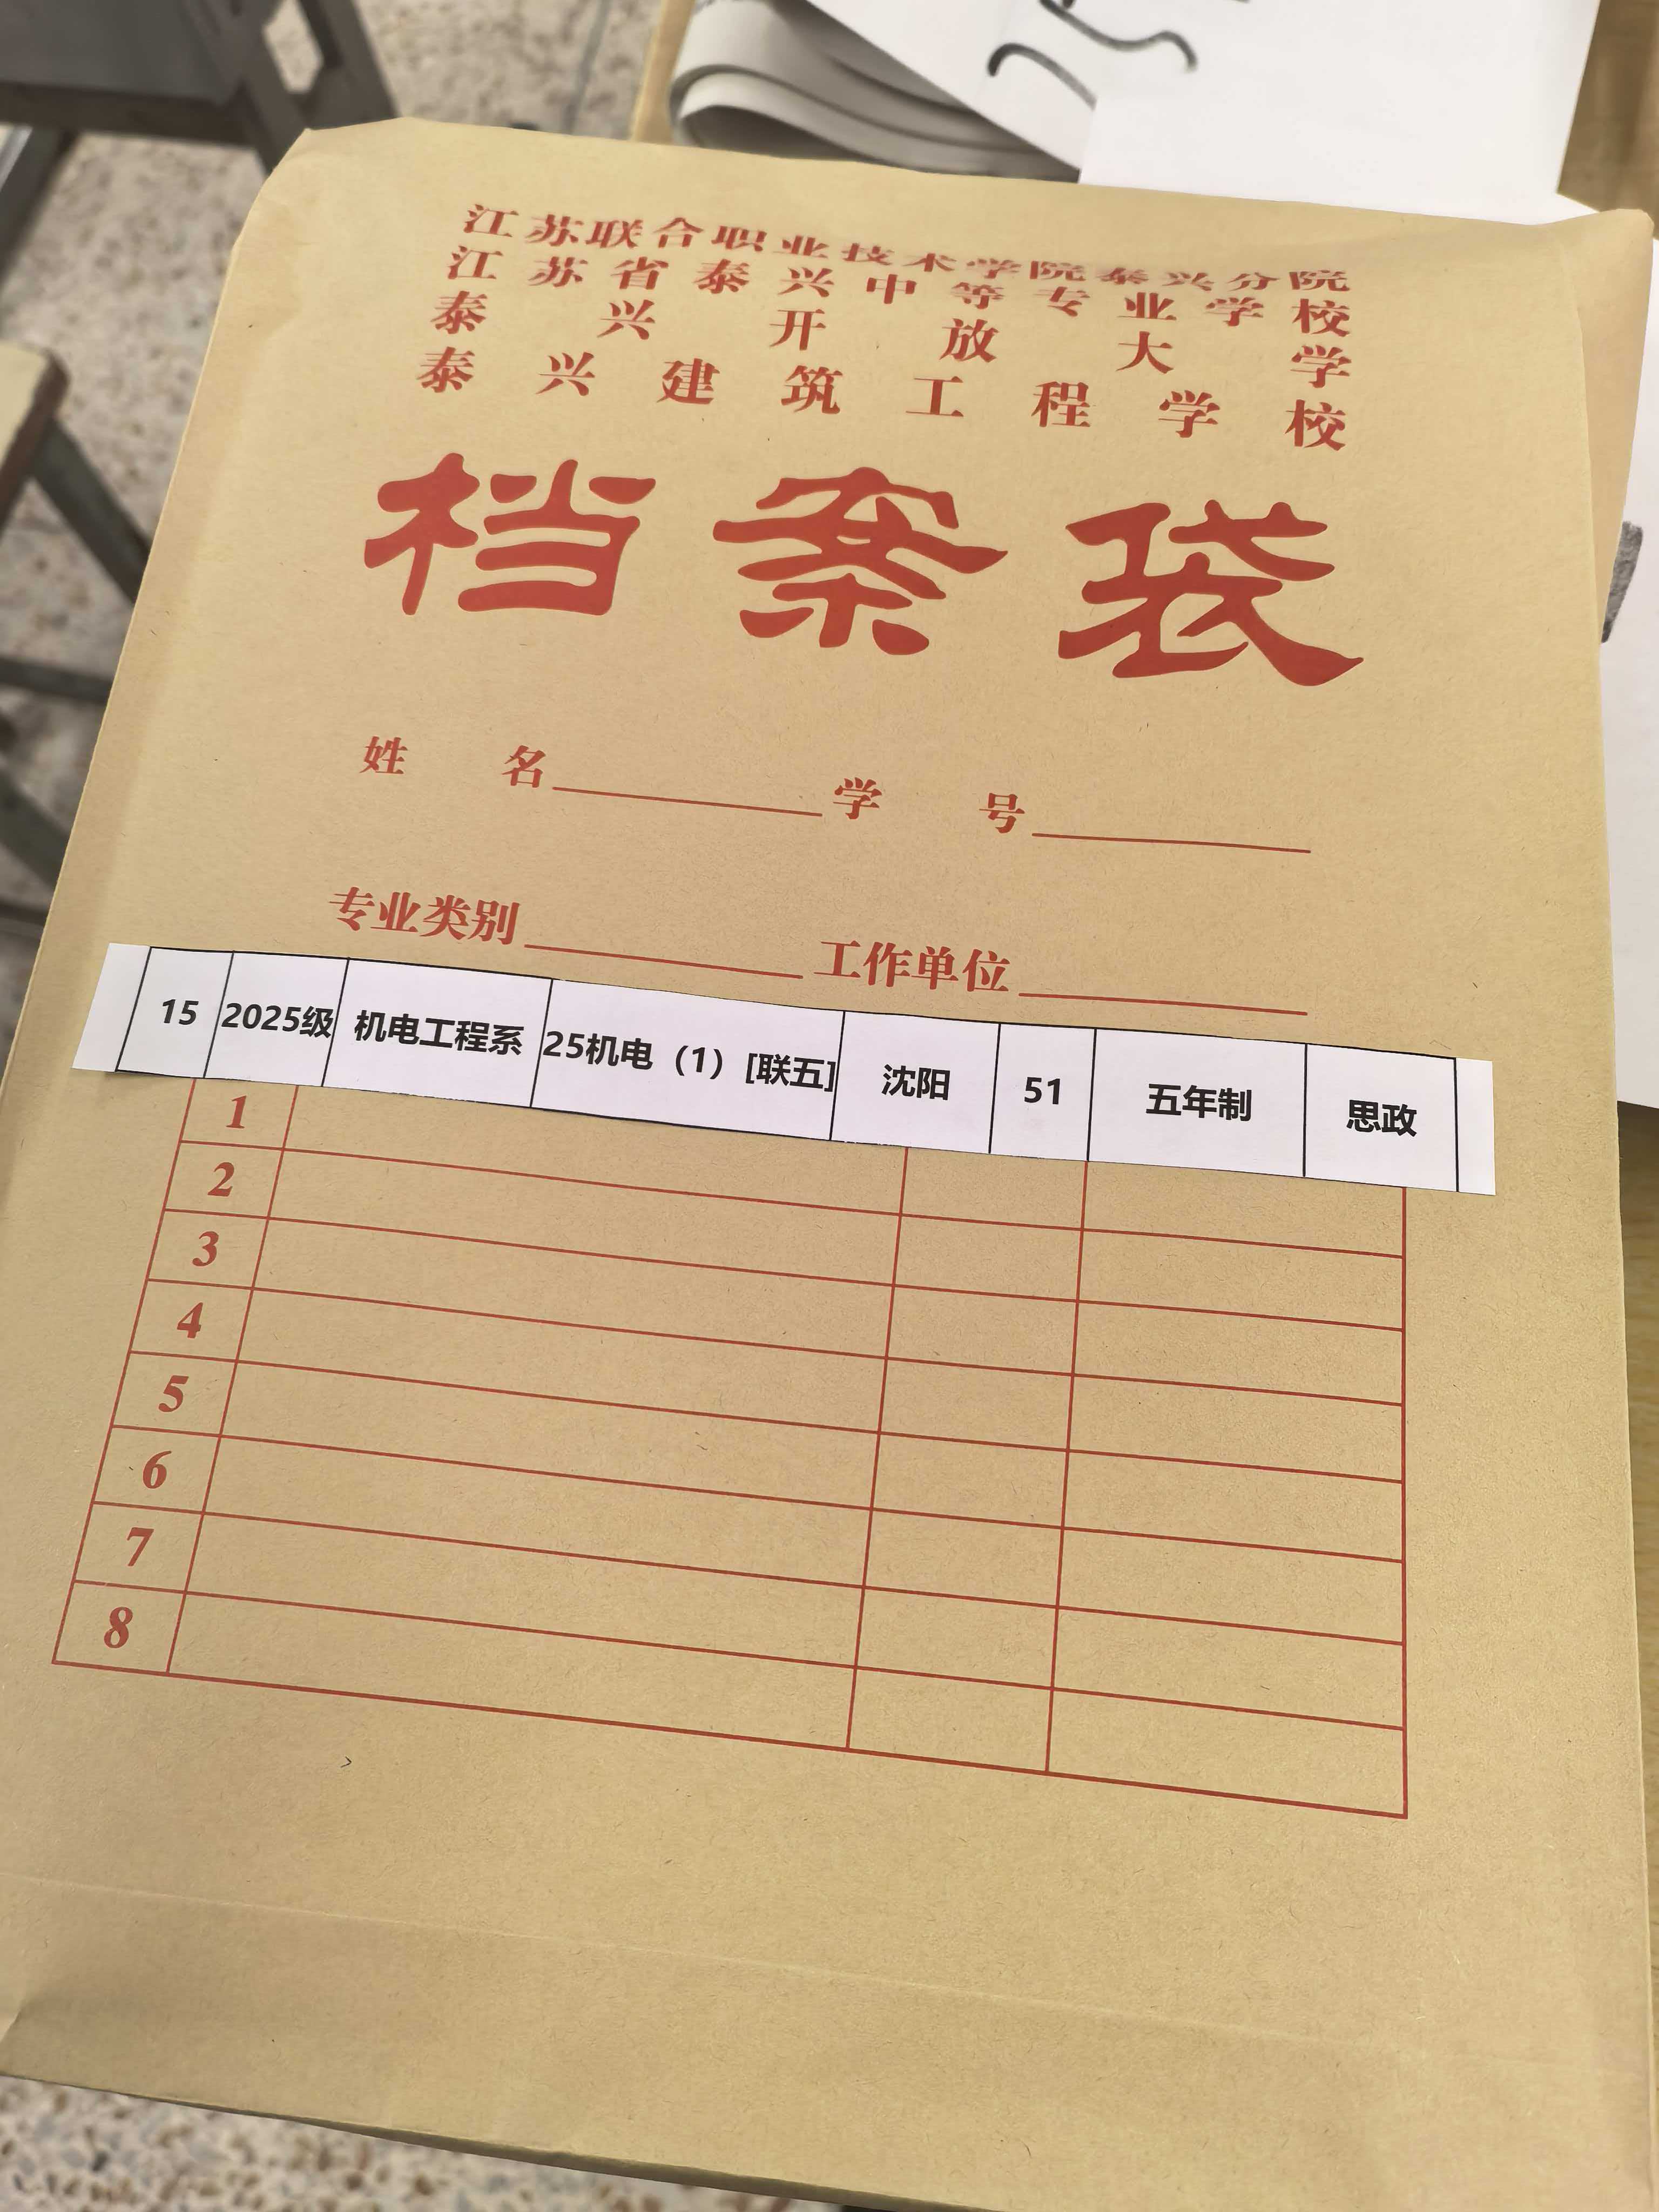 江苏联合职业技术学院泰兴分院
江苏省泰兴中等专业学校
泰兴开放大学
泰兴建筑工程学校
档案袋
姓名 学号
专业类别 工作单位
15 2025级 机电工程系 25机电（1）[联五] 沈阳 51 五年制 思政
1
2
3
4
5
6
7
8